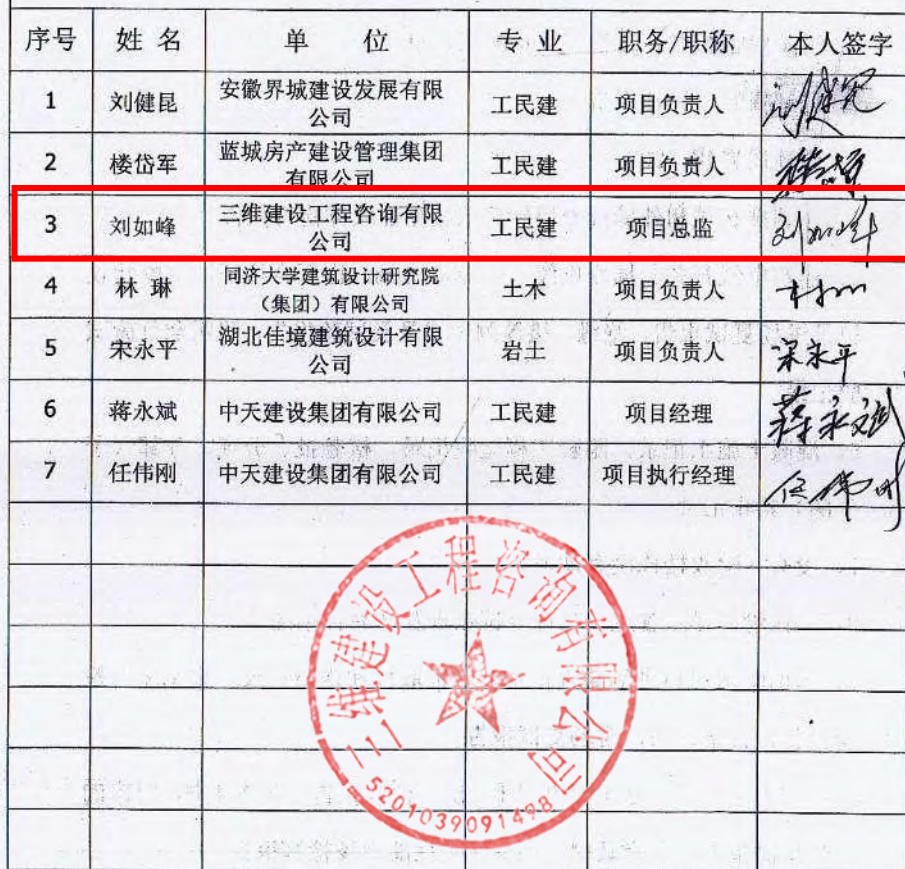 序号 姓 名 单 位 专 业 职务/职称 本人签字
1 刘健昆 安徽界城建设发展有限公司 工民建 项目负责人
2 楼岱军 蓝城房产建设管理集团有限公司 工民建 项目负责人
3 刘如峰 三维建设工程咨询有限公司 工民建 项目总监 刘如峰
4 林 琳 同济大学建筑设计研究院（集团）有限公司 土木 项目负责人
5 宋永平 湖北佳境建筑设计有限公司 岩土 项目负责人 宋永平
6 蒋永斌 中天建设集团有限公司 工民建 项目经理 蒋永斌
7 任伟刚 中天建设集团有限公司 工民建 项目执行经理 任伟刚
三维建设工程咨询有限公司
5201039091498